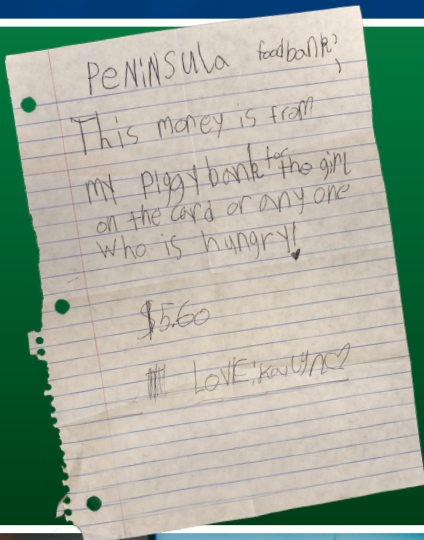 PENiNSUla foodbank;
This money is from
my piggybank for the girl
on the card or any one
who is hungry!
$5.60
LOVE: